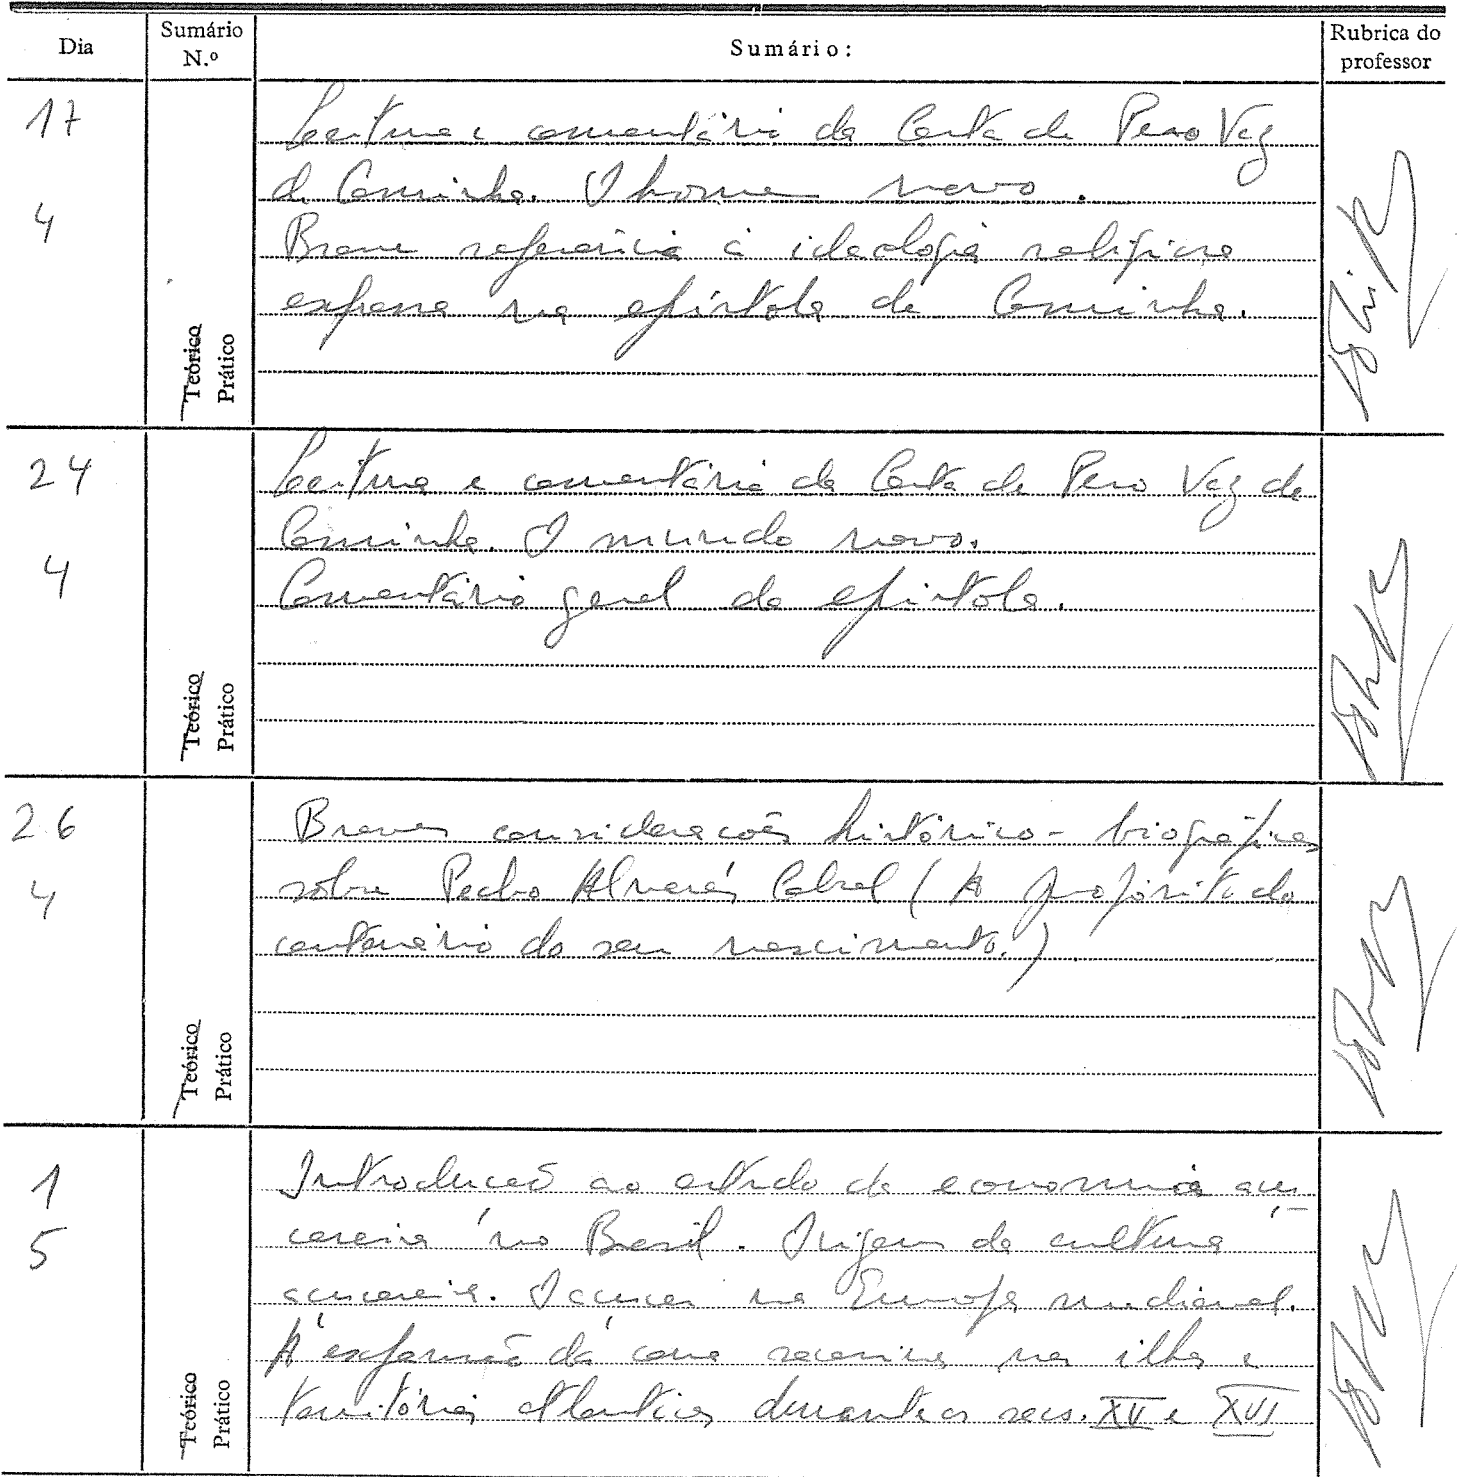 Dia
Sumário N.º
Sumário:
Rubrica do professor
17
4
Teórico
Prático
Leitura e comentário da Carta de Pero Vaz
de Caminha. O homem novo.
Breve referência à ideologia religiosa
expressa na epístola de Caminha.
24
4
Teórico
Prático
Leitura e comentário da Carta de Pero Vaz de
Caminha. O mundo novo.
Comentário geral da epístola.
26
4
Teórico
Prático
Breves considerações histórico-biográficas
sobre Pedro Alvares Cabral (A propósito do
centenário do seu nascimento.)
1
5
Teórico
Prático
Introdução ao estudo da economia açu-
careira no Brasil. Origem da cultura
açucareira. O açucar na Europa medieval.
A expansão da cana sacarina nas ilhas e
territórios atlanticos durante os secs. XV e XVI